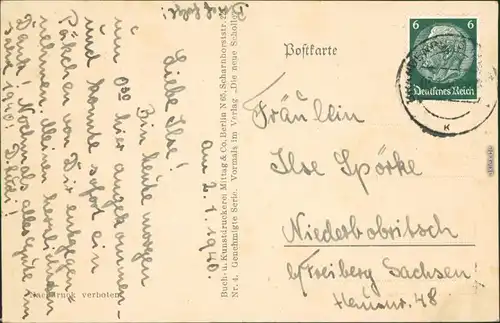 Liebe Ilse!
Bin heute morgen
um 0³⁰ hier angekommen
und konnte sofort ein
Päkchen von Dir entgegen-
nehmen. Meinen herzlichen
Dank! Nochmals alles Gute im
Jahre 1940!
am 2.1.1940
Buch- u. Kunstdruckerei Mittag & Co, Berlin N 65, Scharnhorststr.
Nr. 4. Genehmigte Serie. Vormals im Verlag „Die neue Scholle“
Nachdruck verboten
Postkarte
6 6
Deutsches Reich
K
Fräulein
Ilse Spörke
Niederbobritsch
b/Freiberg Sachsen!
Hausnr. 48